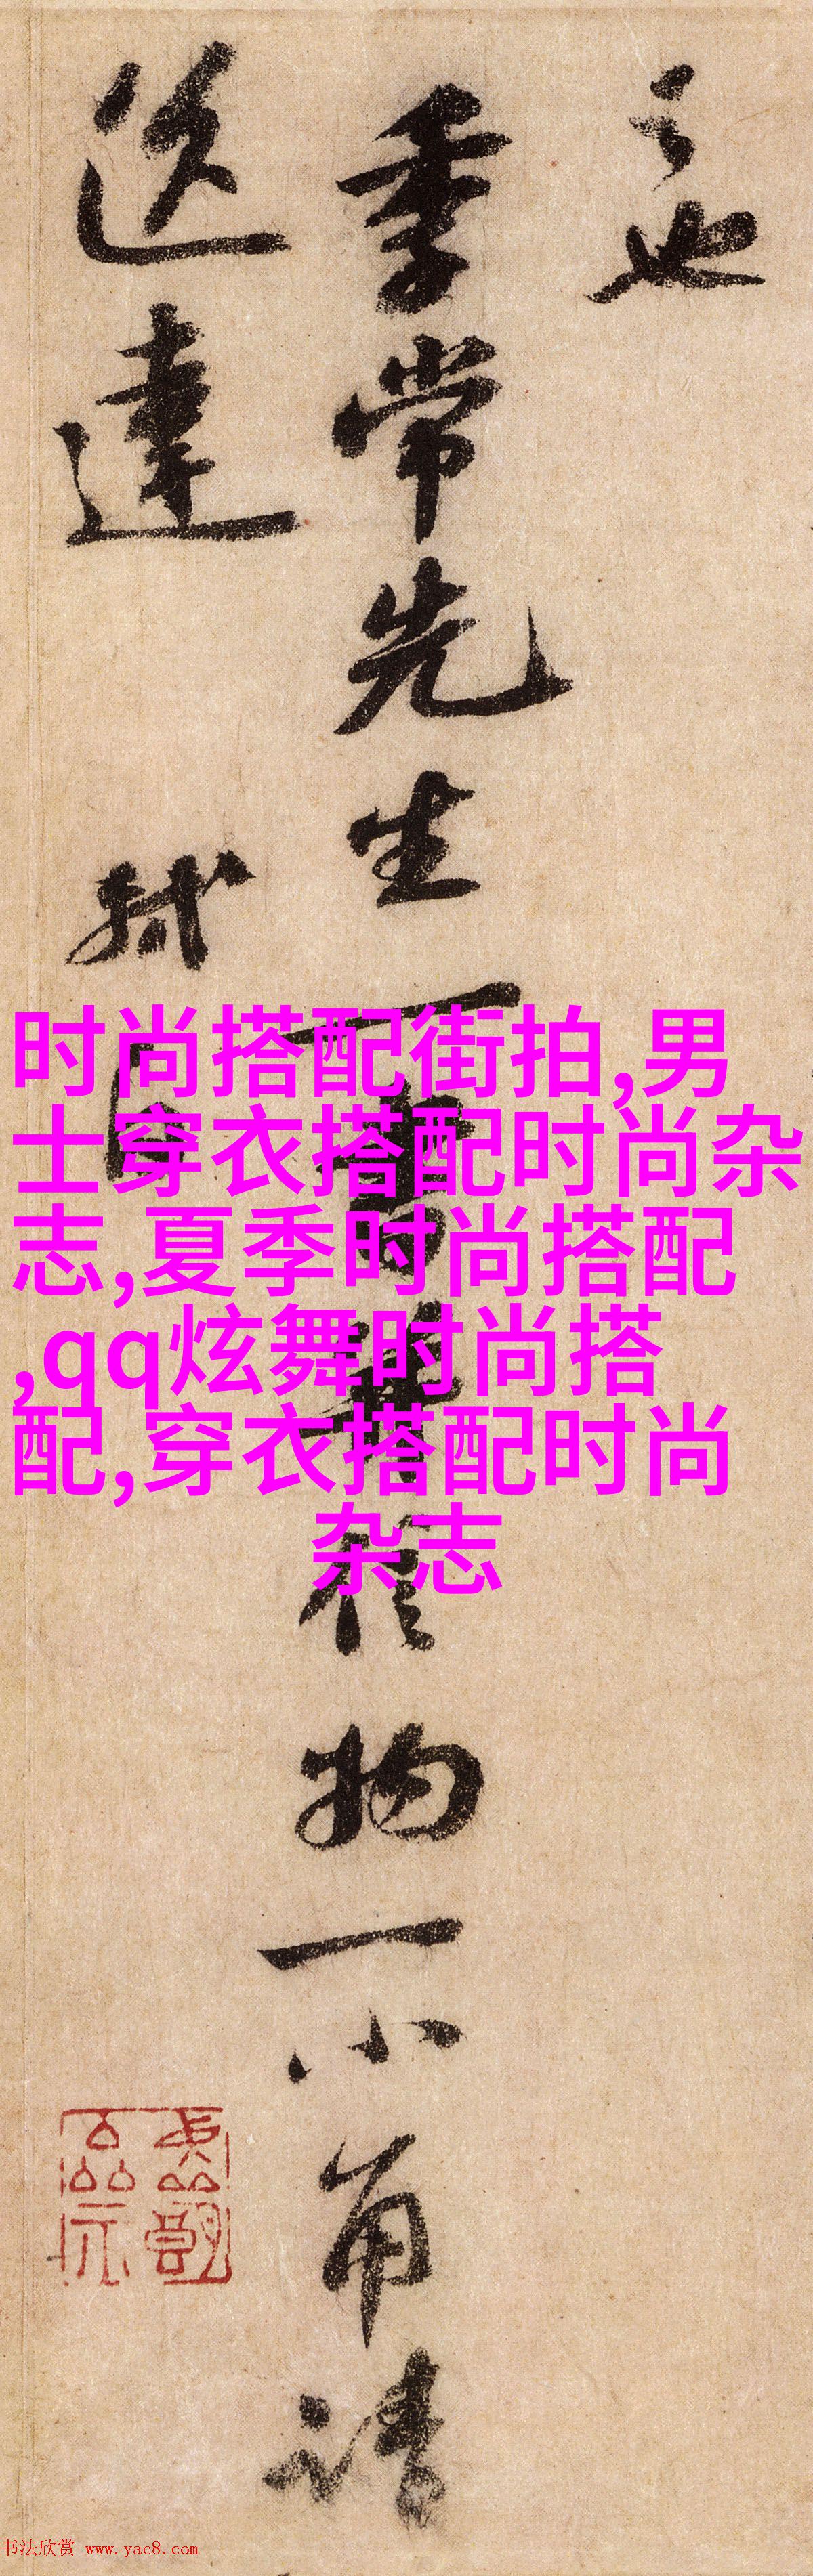 之也
季常先生一書并信物一小角請
送達 軾白
时尚搭配街拍,男
士穿衣搭配时尚杂
志,夏季时尚搭配
,qq炫舞时尚搭
配,穿衣搭配时尚
杂志
书法欣赏 www.yac8.com